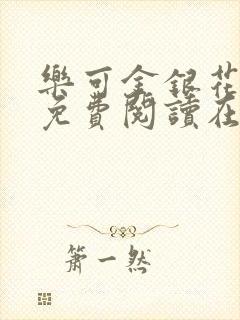 樂可金銀花
免費閱讀在
簫一然